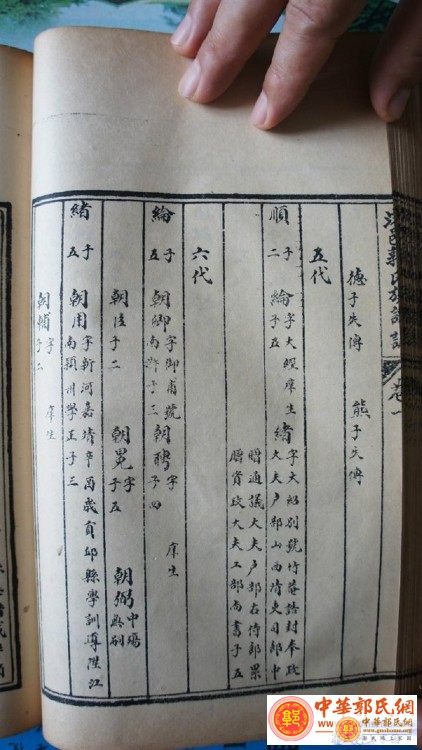 氏族譜 卷一
德子失傳 熊子失傳
五代
順 子二 綸 字大經庠生子五 緒 字大紹別號竹菴誥封奉政大夫戶部山西清吏司郎中
贈通議大夫戶部右侍郎累贈資政大夫工部尚書子五
六代
綸 子五 朝卿 字御甫號南子三 朝聘 字 庠生子四
朝陞 子二 朝冕 字 子五 朝弼 中場
緒 子五 朝用 字新河嘉靖辛酉歲貢邱縣學訓導陞江南潁川學正子三
朝輔 字 庠生子二
中華郭氏網
中華郭氏網
www.guoshong.com